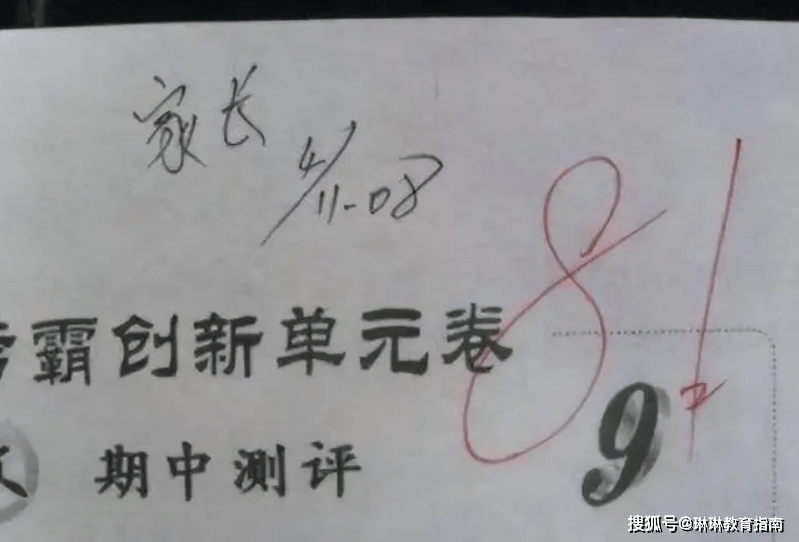 家长
4/11-08
81
霸创新单元卷
9
期中测评
搜狐号@琳琳教育指南